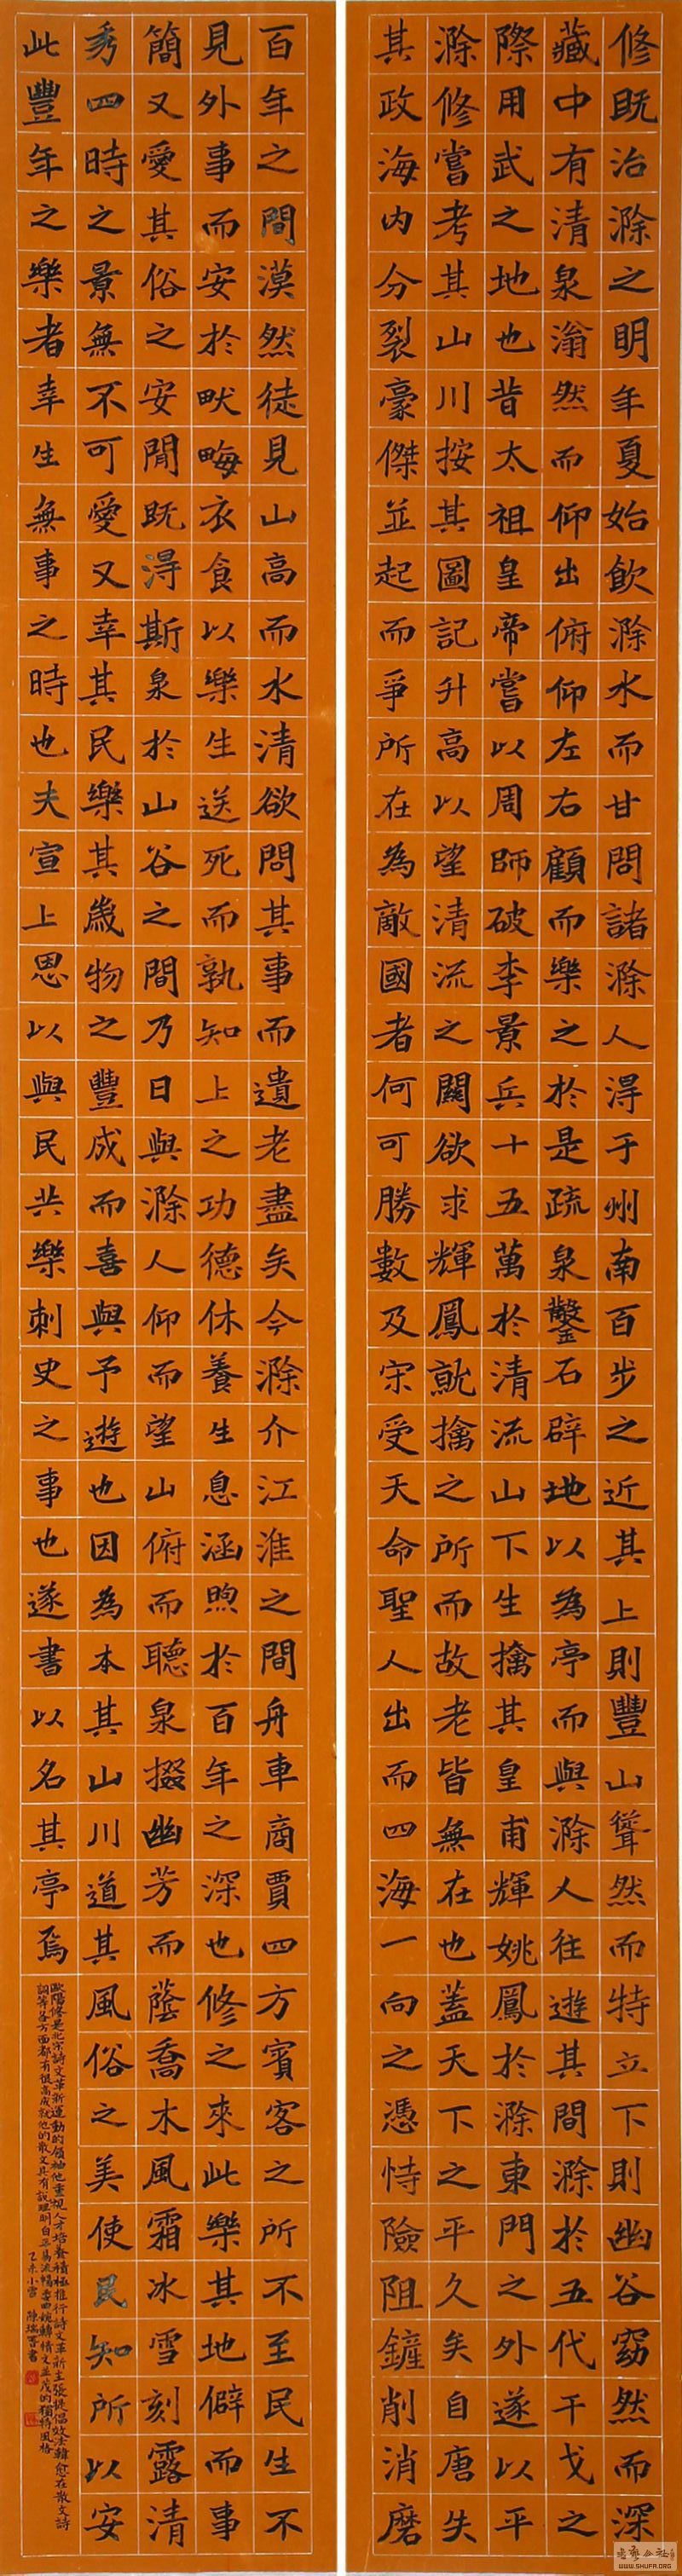 修既治滁之明年夏始飲滁水而甘問諸滁人得于州南百步之近其上則豐山聳然而特立下則幽谷窈然而深
藏中有清泉滃然而仰出俯仰左右顧而樂之於是疏泉鑿石辟地以為亭而與滁人往遊其間滁於五代干戈之
際用武之地也昔太祖皇帝嘗以周師破李景兵十五萬於清流山下生擒其皇甫輝姚鳳於滁東門之外遂以平
滁修嘗考其山川按其圖記升高以望清流之關欲求輝鳳就擒之所而故老皆無在也蓋天下之平久矣自唐失
其政海內分裂豪傑並起而爭所在為敵國者何可勝數及宋受天命聖人出而四海一向之憑恃險阻鏟削消磨
百年之間漠然徒見山高而水清欲問其事而遺老盡矣今滁介江淮之間舟車商賈四方賓客之所不至民生不
見外事而安於畎畮衣食以樂生送死而孰知上之功德休養生息涵煦於百年之深也修之來此樂其地僻而事
簡又愛其俗之安閒既得斯泉於山谷之間乃日與滁人仰而望山俯而聽泉掇幽芳而蔭喬木風霜冰雪刻露清
秀四時之景無不可愛又幸其民樂其歲物之豐成而喜與予遊也因為本其山川道其風俗之美使民知所以安
此豐年之樂者幸生無事之時也夫宣上恩以與民共樂刺史之事也遂書以名其亭焉
歐陽修是北宋詩文革新運動的領袖他重視人才培養積極推行詩文革新主張提倡效法韓愈在散文詩
詞等各方面都有很高成就他的散文具有說理明白平易流暢委曲婉轉情文並茂的獨特風格
乙未小雪 陳瑞 書
WWW.SHUFA.ORG